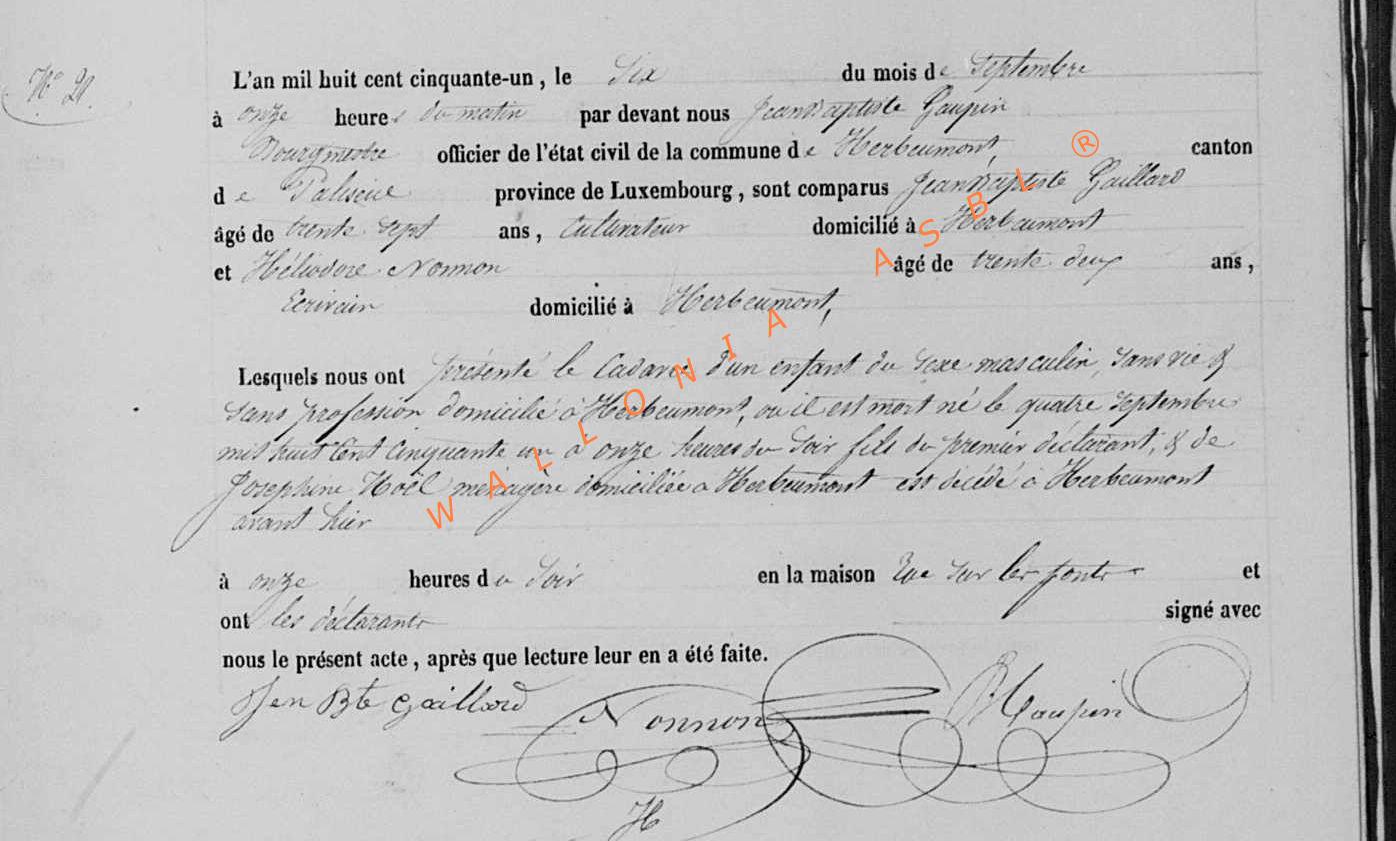 N° 20.
L'an mil huit cent cinquante-un, le Six du mois de Septembre
à onze heures du matin par devant nous Jean Baptiste Gaupin
Bourgmestre officier de l'état civil de la commune de Herbeumont, canton
de Paliseul province de Luxembourg, sont comparus Jean Baptiste Gaillard
âgé de trente sept ans, Cultivateur domicilié à Herbeumont
et Héliodore Nonnon âgé de trente deux ans,
Ecrivain domicilié à Herbeumont,
Lesquels nous ont présenté le Cadavre d'un enfant du Sexe masculin, Sans vie &
Sans profession domicilié à Herbeumont, où il est mort né le quatre Septembre
mil huit Cent Cinquante un à onze heures du Soir fils du premier déclarant, & de
Josephine Noël ménagère domiciliée à Herbeumont est décédé à Herbeumont
avant hier
à onze heures du Soir en la maison Rue Sur les et
ont les déclarants signé avec
nous le présent acte, après que lecture leur en a été faite.
Jen Bte Gaillard Nonnon Gaupin
WALLONIA ASBL ®